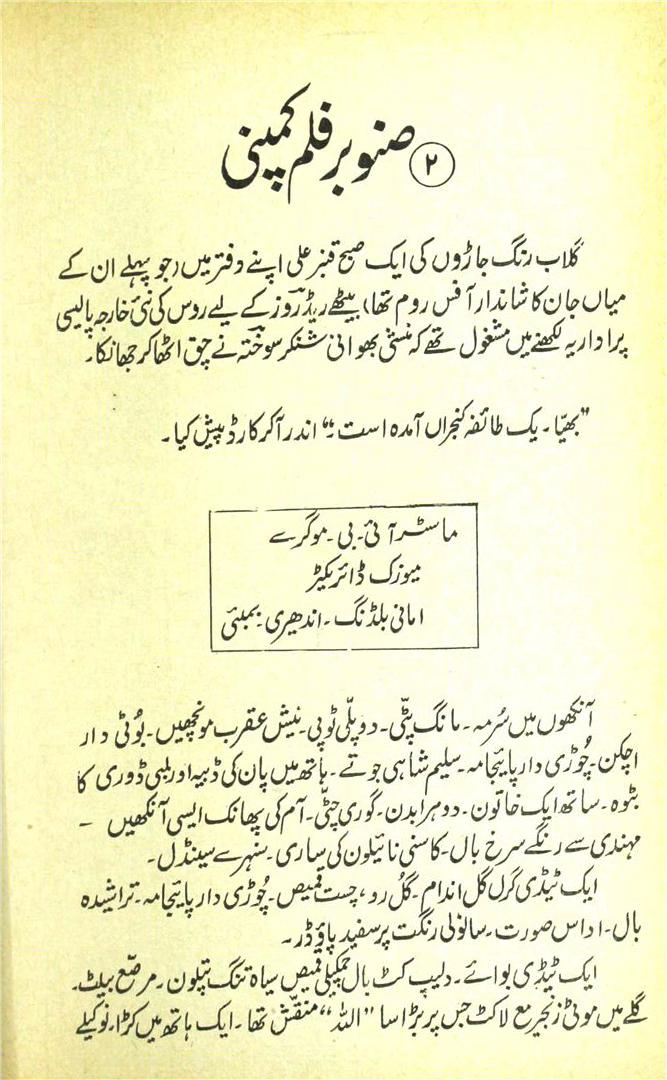 ۲ صنوبر فلم کمپنی
گلاب رنگ جاڑوں کی ایک صبح قنبر علی اپنے دفتر میں (جو پہلے ان کے
میاں جان کا شاندار آفس روم تھا) بیٹھے ریڈ روز کے لیے روس کی نئی خارجہ پالیسی
پر اداریہ لکھنے میں مشغول تھے کہ منشی بھوانی شنکر سوختہ نے چق اٹھا کر جھانکا۔
"بھیّا۔ یک طائفہ کنجراں آمدہ است۔" اندر آ کر کارڈ پیش کیا۔
ماسٹر آئی۔ بی۔ موگرے
میوزک ڈائریکٹر
امانی بلڈنگ۔ اندھیری۔ بمبئی
آنکھوں میں سُرمہ۔ مانگ پٹّی۔ دوپلّی ٹوپی۔ نیش عقرب مونچھیں۔ بُوٹی دار
اچکن۔ چُوڑی دار پائیجامہ۔ سلیم شاہی جوتے۔ ہاتھ میں پان کی ڈبیہ اور لمبی ڈوری کا
بٹوہ۔ ساتھ ایک خاتون۔ دوہرا بدن۔ گوری چٹّی۔ آم کی پھانک ایسی آنکھیں ۔
مہندی سے رنگے سرخ بال۔ کاسنی نائیلون کی ساری۔ سنہرے سینڈل۔
ایک ٹیڈی گرل گل اندام۔ گُل رو، چست قمیص۔ چُوڑی دار پائیجامہ۔ تراشیدہ
بال۔ اداس صورت۔ سانولی رنگت پر سفید پاؤڈر۔
ایک ٹیڈی بوائے۔ دلیپ کٹ بال چمکیلی قمیص سیاہ تنگ پتلون۔ مرصّع بیلٹ۔
گلے میں موٹی زنجیر مع لاکٹ جس پر بڑا سا "اللہ" منقّش تھا۔ ایک ہاتھ میں کڑا۔ نوکیلے